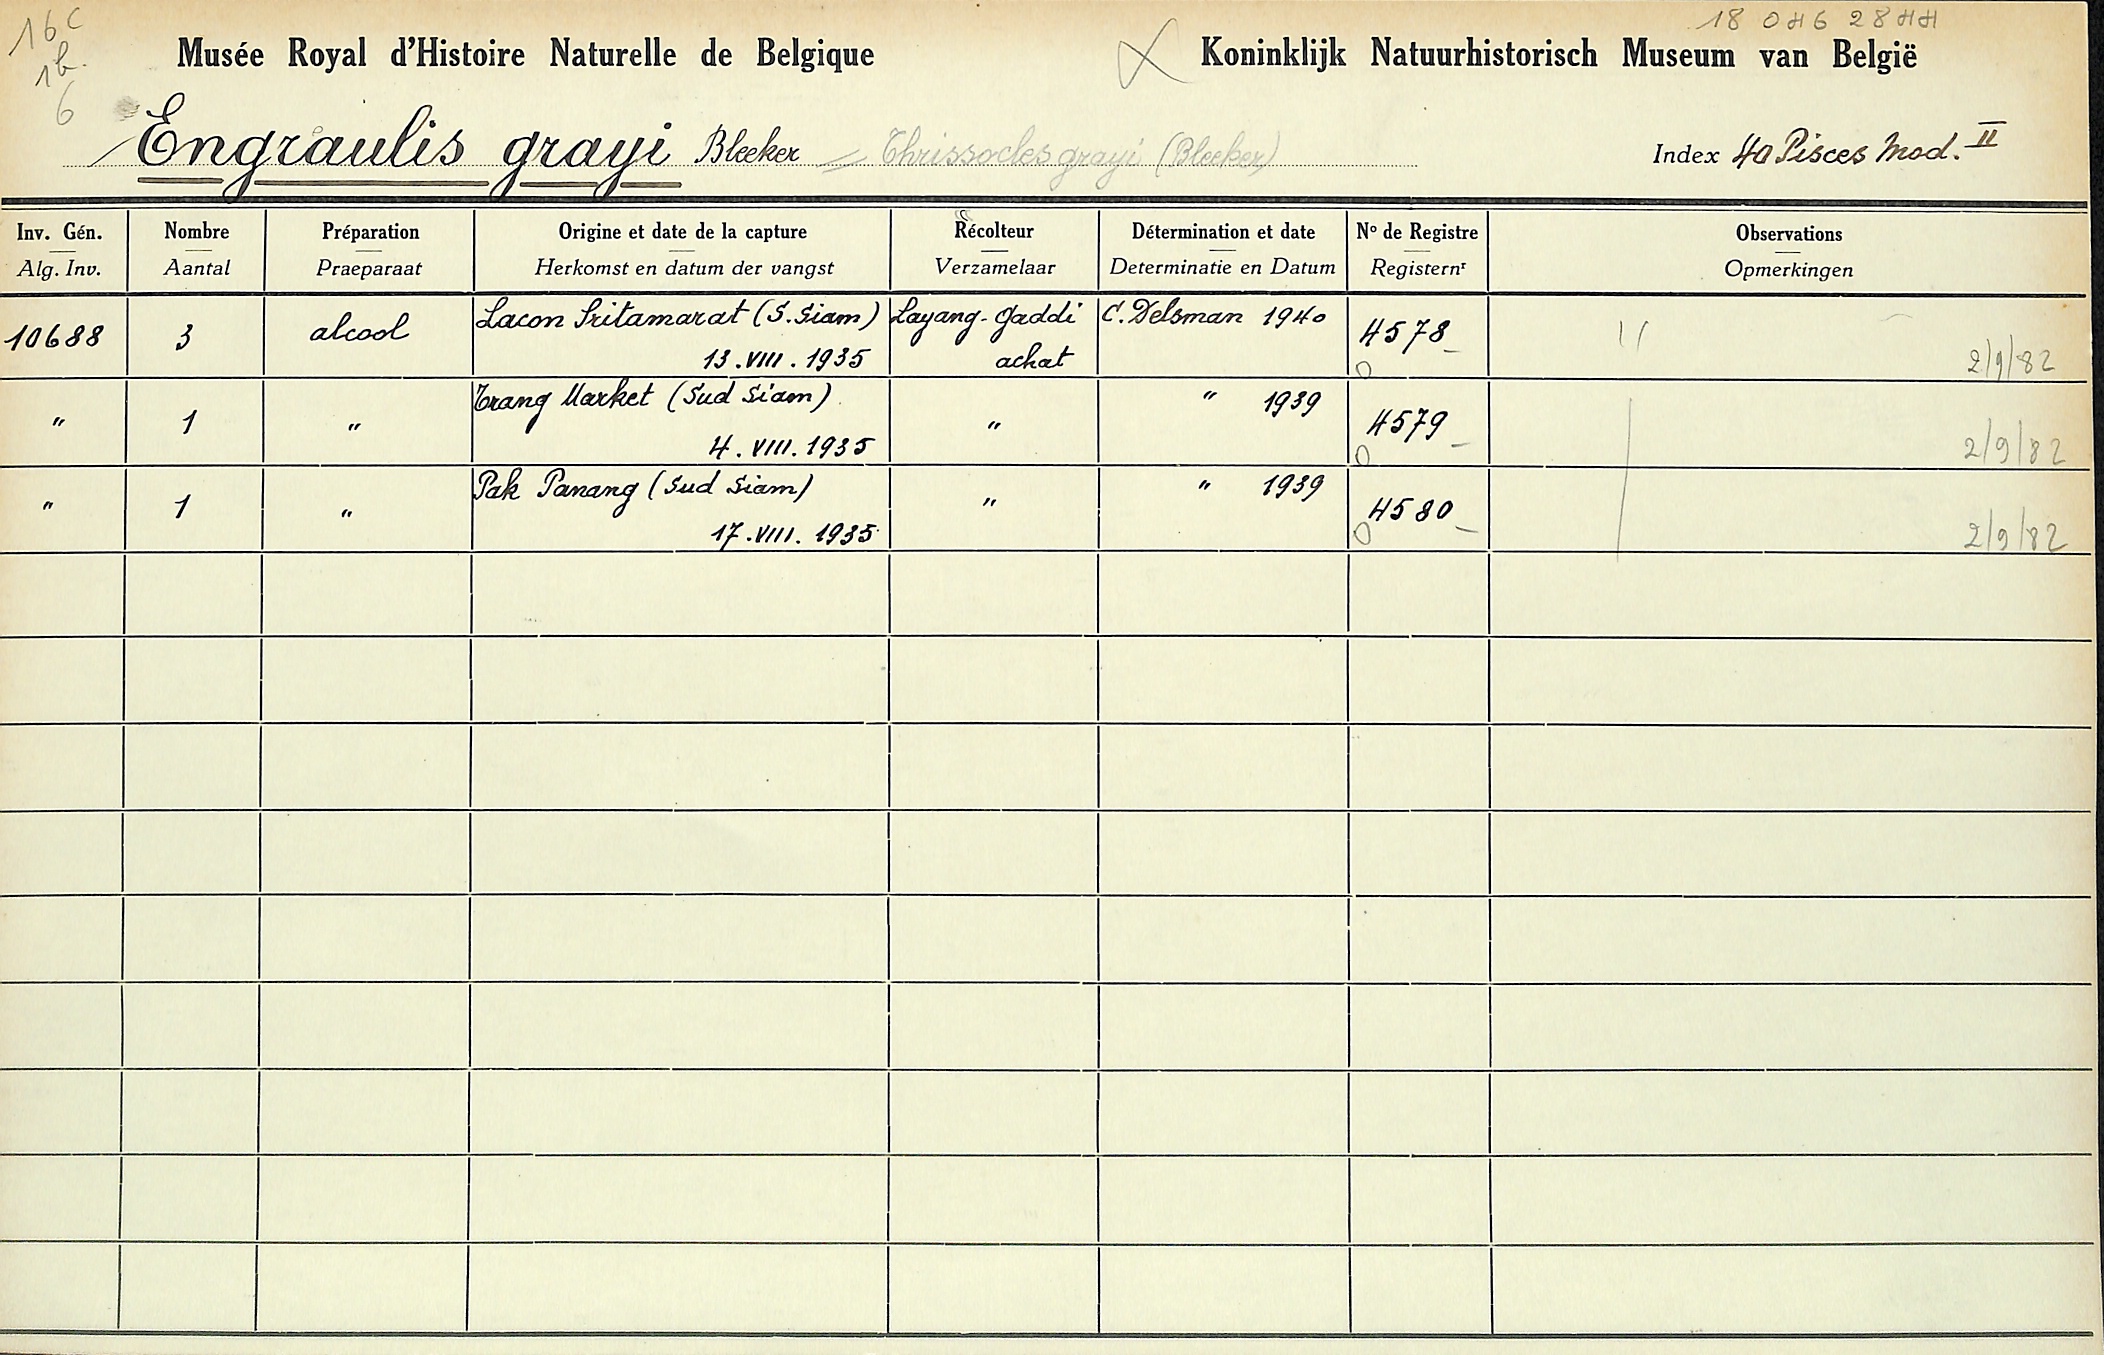 16 C
1b.
6
18 046 28 44
Musée Royal d'Histoire Naturelle de Belgique
Koninklijk Natuurhistorisch Museum van België
Engraulis grayi Bleeker = Thrissocles grayi (Bleeker)
Index 40 Pisces Mod. II
Inv. Gén. Nombre Préparation Origine et date de la capture Récolteur Détermination et date No de Registre Observations
Alg. Inv. Aantal Praeparaat Herkomst en datum der vangst Verzamelaar Determinatie en Datum Registernr Opmerkingen
10688 3 alcool Lacon Sritamarat (S. Siam) Layang-Gaddi C. Delsman 1940 4578
13.VIII.1935 achat 2/9/82
" 1 " Trang Market (Sud Siam) " " 1939 4579
4.VIII.1935 2/9/82
" 1 " Pak Panang (Sud Siam) " " 1939 4580
17.VIII.1935 2/9/82